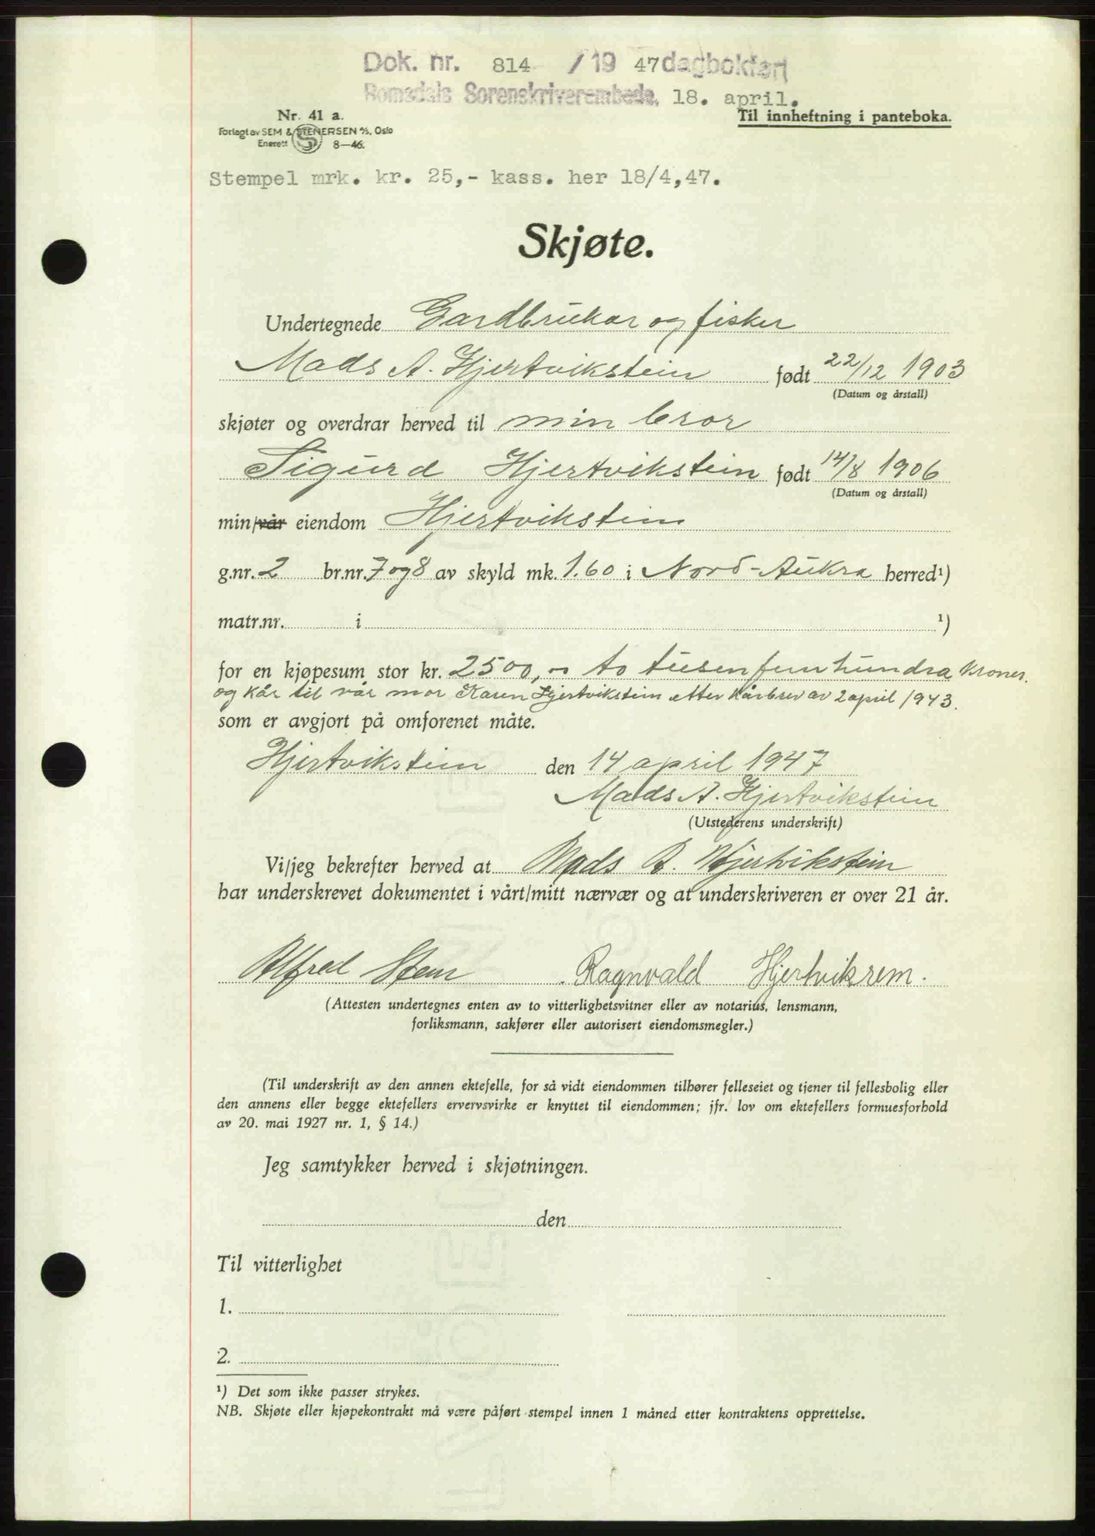 Dok. nr. 814 /19 47 dagbokført
Romsdals Sorenskriverembede, 18. april.
Nr. 41 a.
Til innheftning i panteboka.
Forlagt av SEM & STENERSEN A/S, Oslo
Enerett 8-46.
Stempel mrk. kr. 25,- kass. her 18/4,47.
Skjøte.
Undertegnede Gardbrukar og fisker
Mads A. Hjertvikstein født 22/12 1903
(Datum og årstall)
skjøter og overdrar herved til min bror
Sigurd Hjertvikstein født 14/8 1906
(Datum og årstall)
min/vår eiendom Hjertvikstein
g.nr. 2 br.nr. 7 og 8 av skyld mk. 1.60 i Nord-Aukra herred¹)
matr.nr. i ¹)
for en kjøpesum stor kr. 2500,- to tusen fem hundra kroner.
og kår til vår mor Karen Hjertvikstein etter kårbrev av 2 april 1943.
som er avgjort på omforenet måte.
Hjertvikstein den 14 april 1947
Mads A. Hjertvikstein
(Utstederens underskrift)
Vi/jeg bekrefter herved at Mads A. Hjertvikstein
har underskrevet dokumentet i vårt/mitt nærvær og at underskriveren er over 21 år.
Alfred Stem Ragnvald Hjertvikrem.
(Attesten undertegnes enten av to vitterlighetsvitner eller av notarius, lensmann,
forliksmann, sakfører eller autorisert eiendomsmegler.)
(Til underskrift av den annen ektefelle, for så vidt eiendommen tilhører felleseiet og tjener til fellesbolig eller
den annens eller begge ektefellers ervervsvirke er knyttet til eiendommen; jfr. lov om ektefellers formuesforhold
av 20. mai 1927 nr. 1, § 14.)
Jeg samtykker herved i skjøtningen.
den
Til vitterlighet
1.
2.
¹) Det som ikke passer strykes.
NB. Skjøte eller kjøpekontrakt må være påført stempel innen 1 måned etter kontraktens opprettelse.